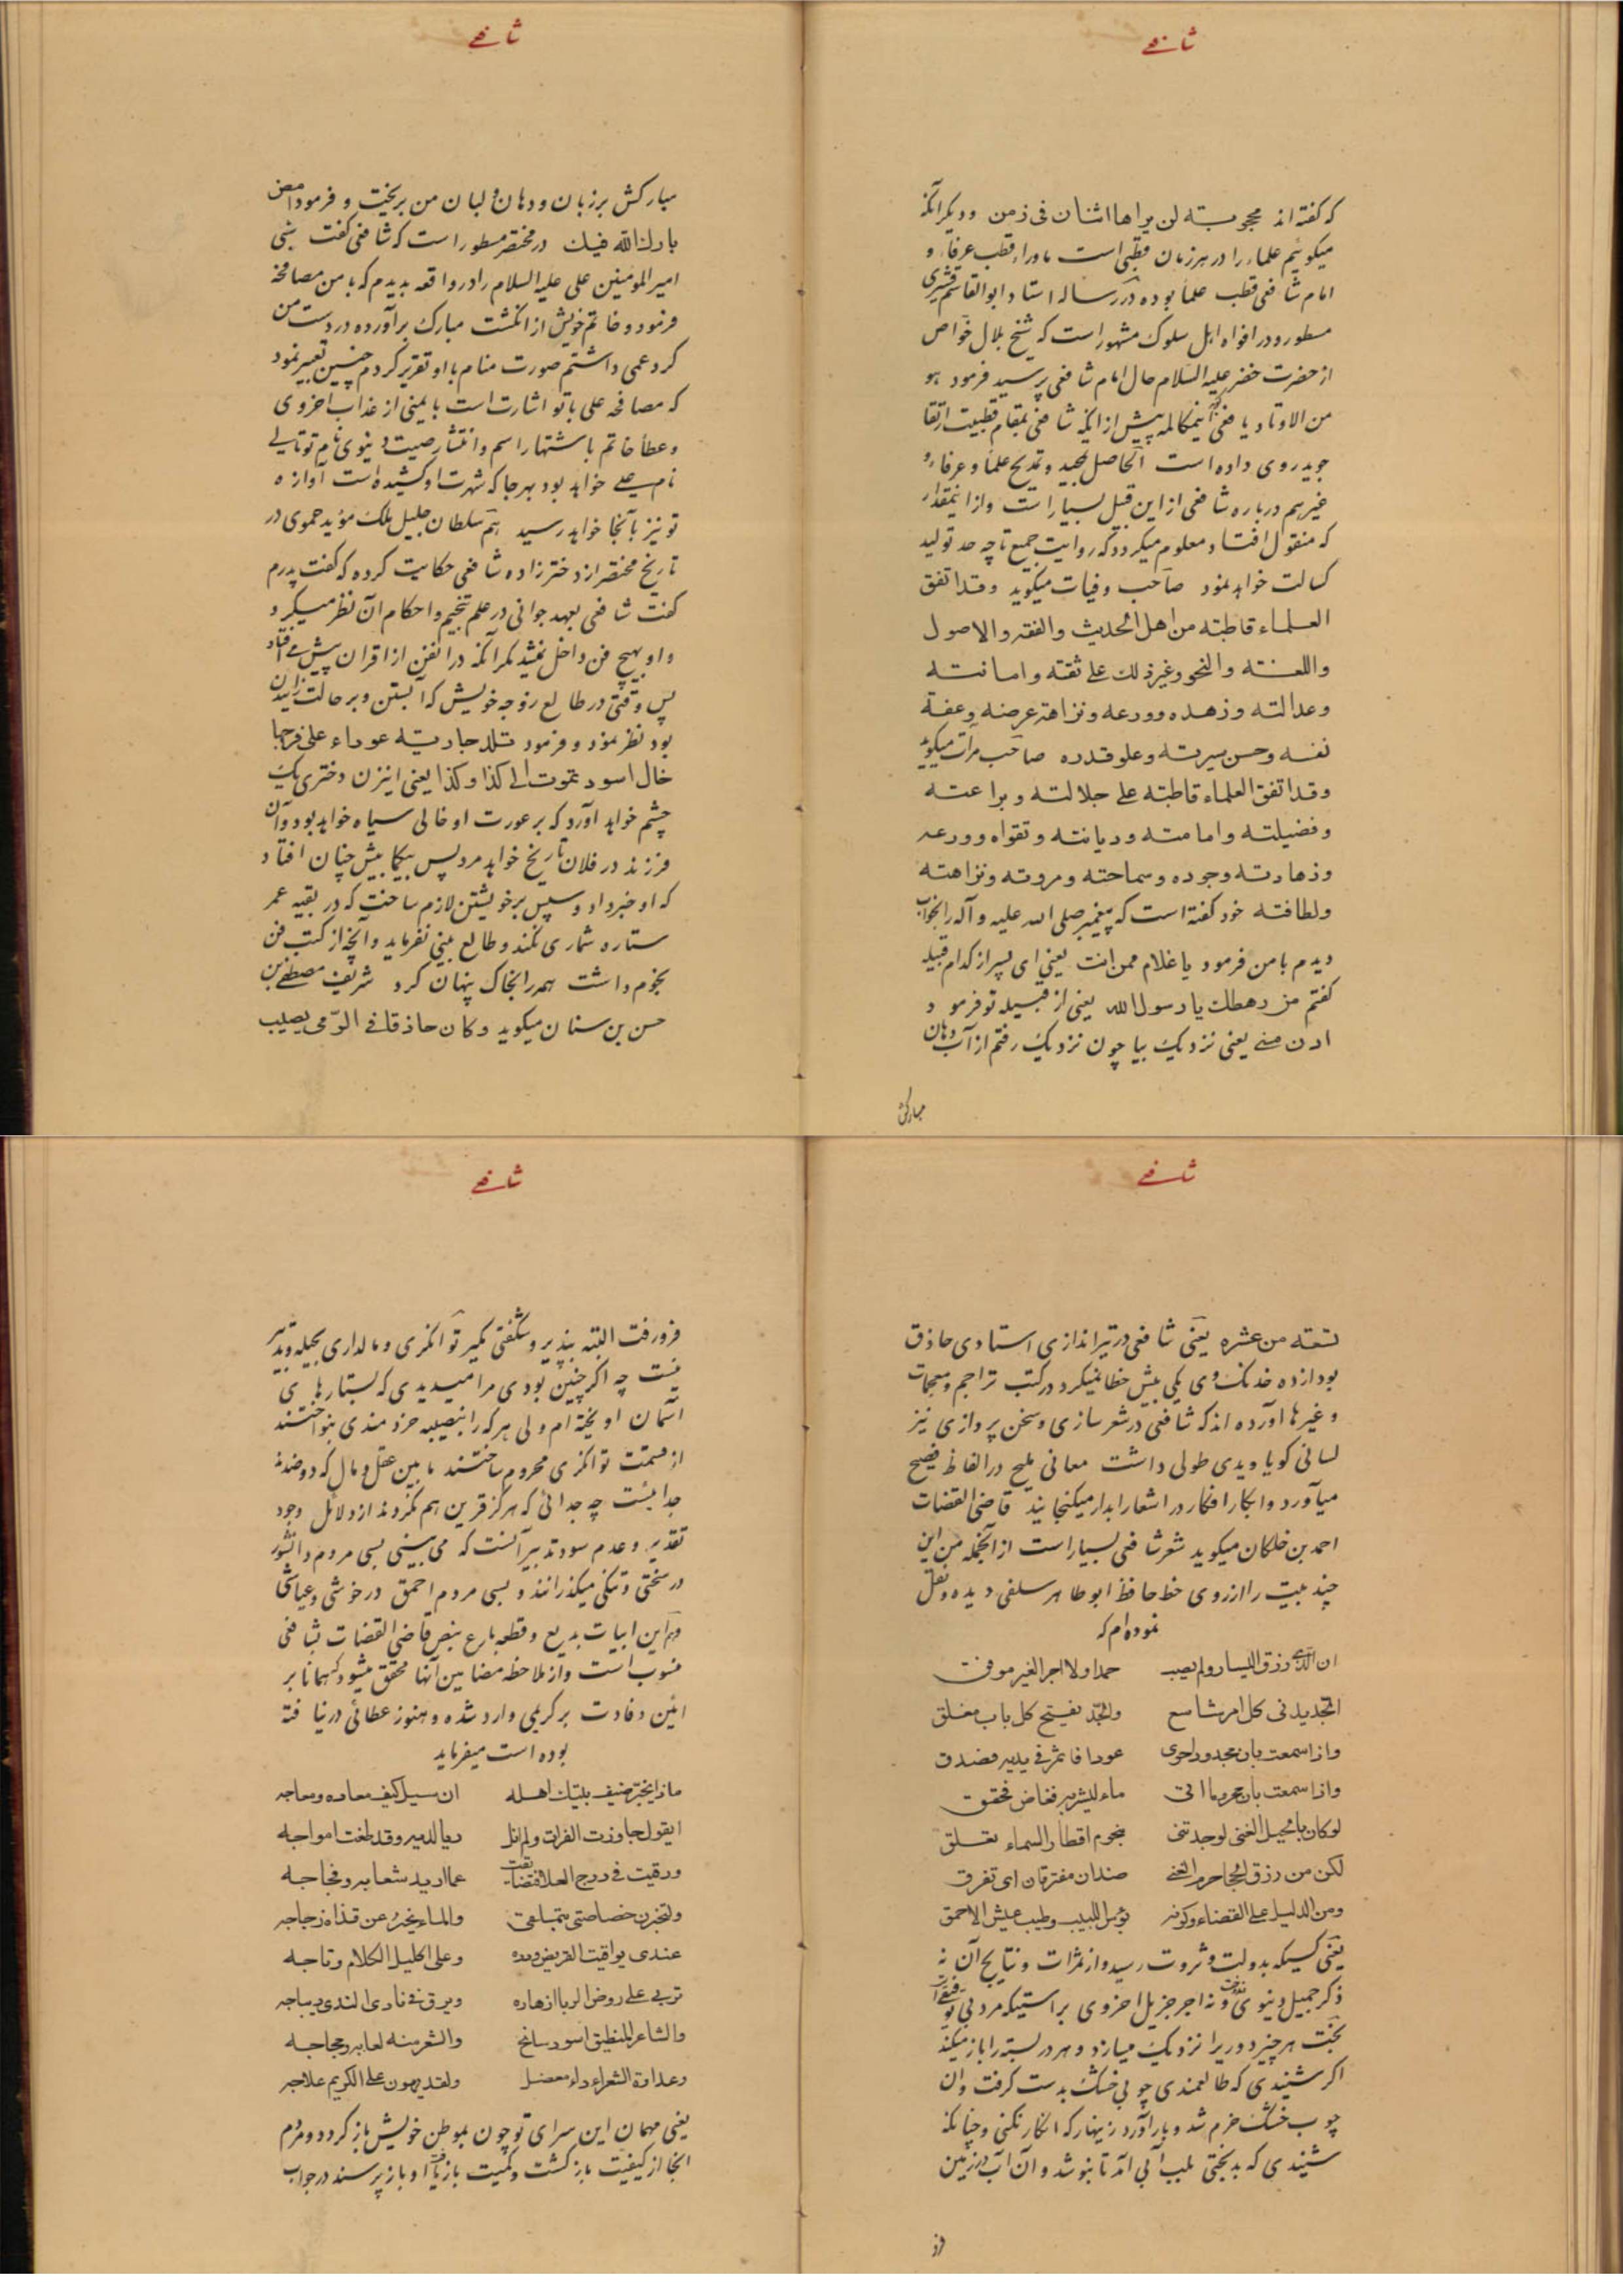 شافعی
که گفته‌اند محجوبته لن یراها اثنان فی زمن و دیگر آنکه
میگوئیم علماء را در هر زمان قطبی است ماوراء قطب عرفاء و
امام شافعی قطب علما بوده در رساله استاد ابوالقاسم قشیری
مسطور و در افواه اهل سلوک مشهور است که شیخ بلال خواص
از حضرت خضر علیه السلام حال امام شافعی پرسید فرمود هو
من الاوتاد یافعی اینمکالمه پیش از اینکه شافعی بمقام قطبیت ارتقا
جوید روی داده است الحاصل تمجید و مدیح علما و عرفاء و
غیرهم درباره شافعی از این قبیل بسیار است و از اینمقدار
که منقول افتاد معلوم میگردد که روایت جمیع تا چه حد تولید
کسالت خواهد نمود صاحب وفیات میگوید و قد اتفق
العلماء قاطبته من اهل الحدیث والفقه والاصول
واللغته والنحو وغیر ذلك علی ثقته وامانته
وعدالته وزهده وورعه ونزاهة عرضه وعفة
نفسه وحسن سیرته وعلو قدره صاحب مرآت میگوید
وقد اتفق العلماء قاطبته علی جلالته وبراعته
وفضیلته وامامته ودیانته وتقواه وورعه
وزهادته وجوده وسماحته ومروته ونزاهته
ولطافته خود گفته است که پیغمبر صلی الله علیه و آله را بخواب
دیدم با من فرمود یا غلام ممن انت یعنی ای پسر از کدام قبیله
گفتم من رهطك یا رسول الله یعنی از قبیله تو فرمود
ادن منی یعنی نزدیک بیا چون نزدیک رفتم از آب دهان
مبارکش
شافعی
مبارکش بر زبان و دهان و لبان من بریخت و فرمود امض
بارك الله فیك در مختصر مسطور است که شافعی گفت شبی
امیر المومنین علی علیه السلام را در واقعه بدیدم که با من مصافحه
فرمود و خاتم خویش از انگشت مبارک برآورده در دست من
کرد عمی داشتم صورت منام با او تقریر کردم چنین تعبیر نمود
که مصافحه علی با تو اشارت است بایمنی از عذاب اخروی
و عطاء خاتم باشتهار اسم و انتشار صیت دنیوی نام تو تالی
نام علی خواهد بود بهر جا که شهرت او کشیده است آوازه
تو نیز بآنجا خواهد رسید هم سلطان جلیل ملک مؤید حموی در
تاریخ مختصر از دختر زاده شافعی حکایت کرده که گفت پدرم
گفت شافعی بعهد جوانی در علم تنجیم و احکام آن نظر میکرد
و او بهیچ فن داخل نمیشد مگر آنکه در انفن از اقران پیش می افتاد
پس وقتی در طالع زوجه خویش که آبستن و بر حالت زاییدن
بود نظر نمود و فرمود تلد جاریته عوراء علی فرجها
خال اسود تموت الی کذا و کذا یعنی اینزن دختری یک
چشم خواهد آورد که بر عورت او خالی سیاه خواهد بود و آن
فرزند در فلان تاریخ خواهد مرد پس بیکما بیش چنان افتاد
که او خبر داد و سپس بر خویشتن لازم ساخت که در بقیه عمر
ستاره شماری نکند و طالع بینی نفرماید و آنچه از کتب فن
نجوم داشت همه را بخاک پنهان کرد شریف مصطفی بن
حسن بن سنان میگوید و کان حاذقا فی الرّمی یصیب
شافعی
تسعته من عشره یعنی شافعی در تیراندازی استادی حاذق
بود از ده خدنک وی یکی بیش خطا نمیکرد در کتب تراجم و معجمات
و غیرها آورده اند که شافعی در شعر سازی و سخن پردازی نیز
لسانی گویا و یدی طولی داشت معانی ملیح در الفاظ فصیح
میآورد و ابکار افکار در اشعار ابدار میگنجانید قاضی القضات
احمد بن خلکان میگوید شعر شافعی بسیار است از آنجمله من این
چند بیت را از روی خط حافظ ابوطاهر سلفی دیده و نقل
نموده‌ام که
ان الذی رزق الیسار ولم یصب حمدا ولا اجرا لغیر موفق
الجد یدنی کل امر شاسع والجد یفتح کل باب مغلق
واذا سمعت بان مجدودا حوی عودا فاثمر فی یدیه فصدق
واذا سمعت بان محروما اتی ماء لیشربه فغاض فحقق
لوکان بالحیل الغنی لوجدتنی بنجوم اقطار السماء تعلق
لکن من رزق الحجا حرم الغنی ضدان مفترقان ای تفرق
ومن الدلیل علی القضاء وکونه بؤس اللبیب وطیب عیش الاحمق
یعنی کسیکه بدولت و ثروت رسید و از ثمرات و نتایج آن نه
ذکر جمیل دنیوی یافت و نه اجر جزیل اخروی براستیکه مرد بی توفیقی است
بخت هر چیز دور یرا نزدیک میسازد و هر در بسته را باز میکند
اگر شنیدی که طالعمندی چوبی خشک بدست گرفت و ان
چوب خشک خرم شد و بار آورد زینهار که انکار نکنی و چنانکه
شنیدی که بدبختی بلب آبی آمد تا بنوشد و آن آب در زمین
فرو
شافعی
فرو رفت البته بپذیر و شگفتی مگیر توانگری و مالداری بحیله و تدبیر
نیست چه اگر چنین بودی مرا میدیدی که بستارهای
آسمان آویخته‌ام ولی هر که را بنصیبه خردمندی بنواختند
از قسمت توانگری محروم ساختند مابین عقل و مال که دو ضدند
جدائیست چه جدائی که هرگز قرین هم نگردند از دلائل وجود
تقدیر و عدم سود تدبیر آنست که می بینی بسی مردم دانشور
در سختی و تنگی میگذرانند و بسی مردم احمق در خوشی و عیاشی
و هم این ابیات بدیع و قطعه بارع بنص قاضی القضات بشافعی
منسوب است و از ملاحظه مضامین آنها محقق میشود که همانا بر
ائین وفادت بر کریمی وارد شده و هنوز عطائی در نیافته
بوده است میفرماید
ماذا یخبر ضیف بیتك اهله ان سیل کیف معاده ومعاجه
ایقول جاوزت الفرات ولم انل ریا لدیه وقد طغت امواجه
ورقیت فی درج العلا فتضایقت عما ارید شعابه وفجاجه
ولتخبرن خصاصتی بتملقی والماء یخبر عن قذاه زجاجه
عندی یواقیت القریض ودره وعلی اکلیل الکلام وتاجه
تربی علی روض الربا ازهاره ویرق فی نادی الندی دیباجه
والشاعر المنطیق اسود سالخ والشعر منه لعابه ومجاجه
وعداوة الشعراء داء معضل ولقد یهون علی الکریم علاجه
یعنی مهمان این سرای تو چون بموطن خویش باز گردد و مردم
انجا از کیفیت بازگشت و کمیت بازیافت او باز پرسند در جواب